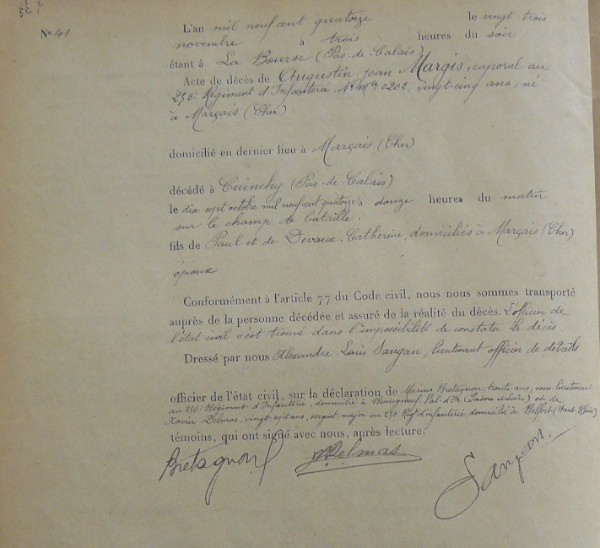 L'an mil neufcent quatorze le vingt trois
No 41
novembre à trois heures du soir
étant à La Bourse (Pas-de-Calais)
Acte de décès de Augustin Jean Margis, caporal au
256e Régiment d'Infanterie No Mle 0202, vingt-cinq ans, né
à Marçais (Cher)
domicilié en dernier lieu à Marçais (Cher)
décédé à Cuinchy (Pas-de-Calais)
le dix-sept octobre mil neufcent quatorze à douze heures du matin
sur le champ de bataille.
fils de Paul et de Devaux, Catherine, domiciliés à Marçais (Cher)
époux
Conformément à l'article 77 du Code civil, nous nous sommes transporté
auprès de la personne décédée et assuré de la réalité du décès. L'officier de
l'état civil s'est trouvé dans l'impossibilité de constater le décès.
Dressé par nous Alexandre Louis Sangan, lieutenant officier de détails
officier de l'état civil, sur la déclaration de Marius Bretagnon, trente ans, sous lieutenant
au 256e Régiment d'Infanterie, domicilié à Bourgneuf Val d'Or (Saône et Loire) et de
Xavier Delmas, vingt-sept ans, sergent major au 256 Régt d'infanterie domicilié à Belfort (Haut Rhin)
témoins, qui ont signé avec nous, après lecture.
Bretagnon Delmas
Sangan